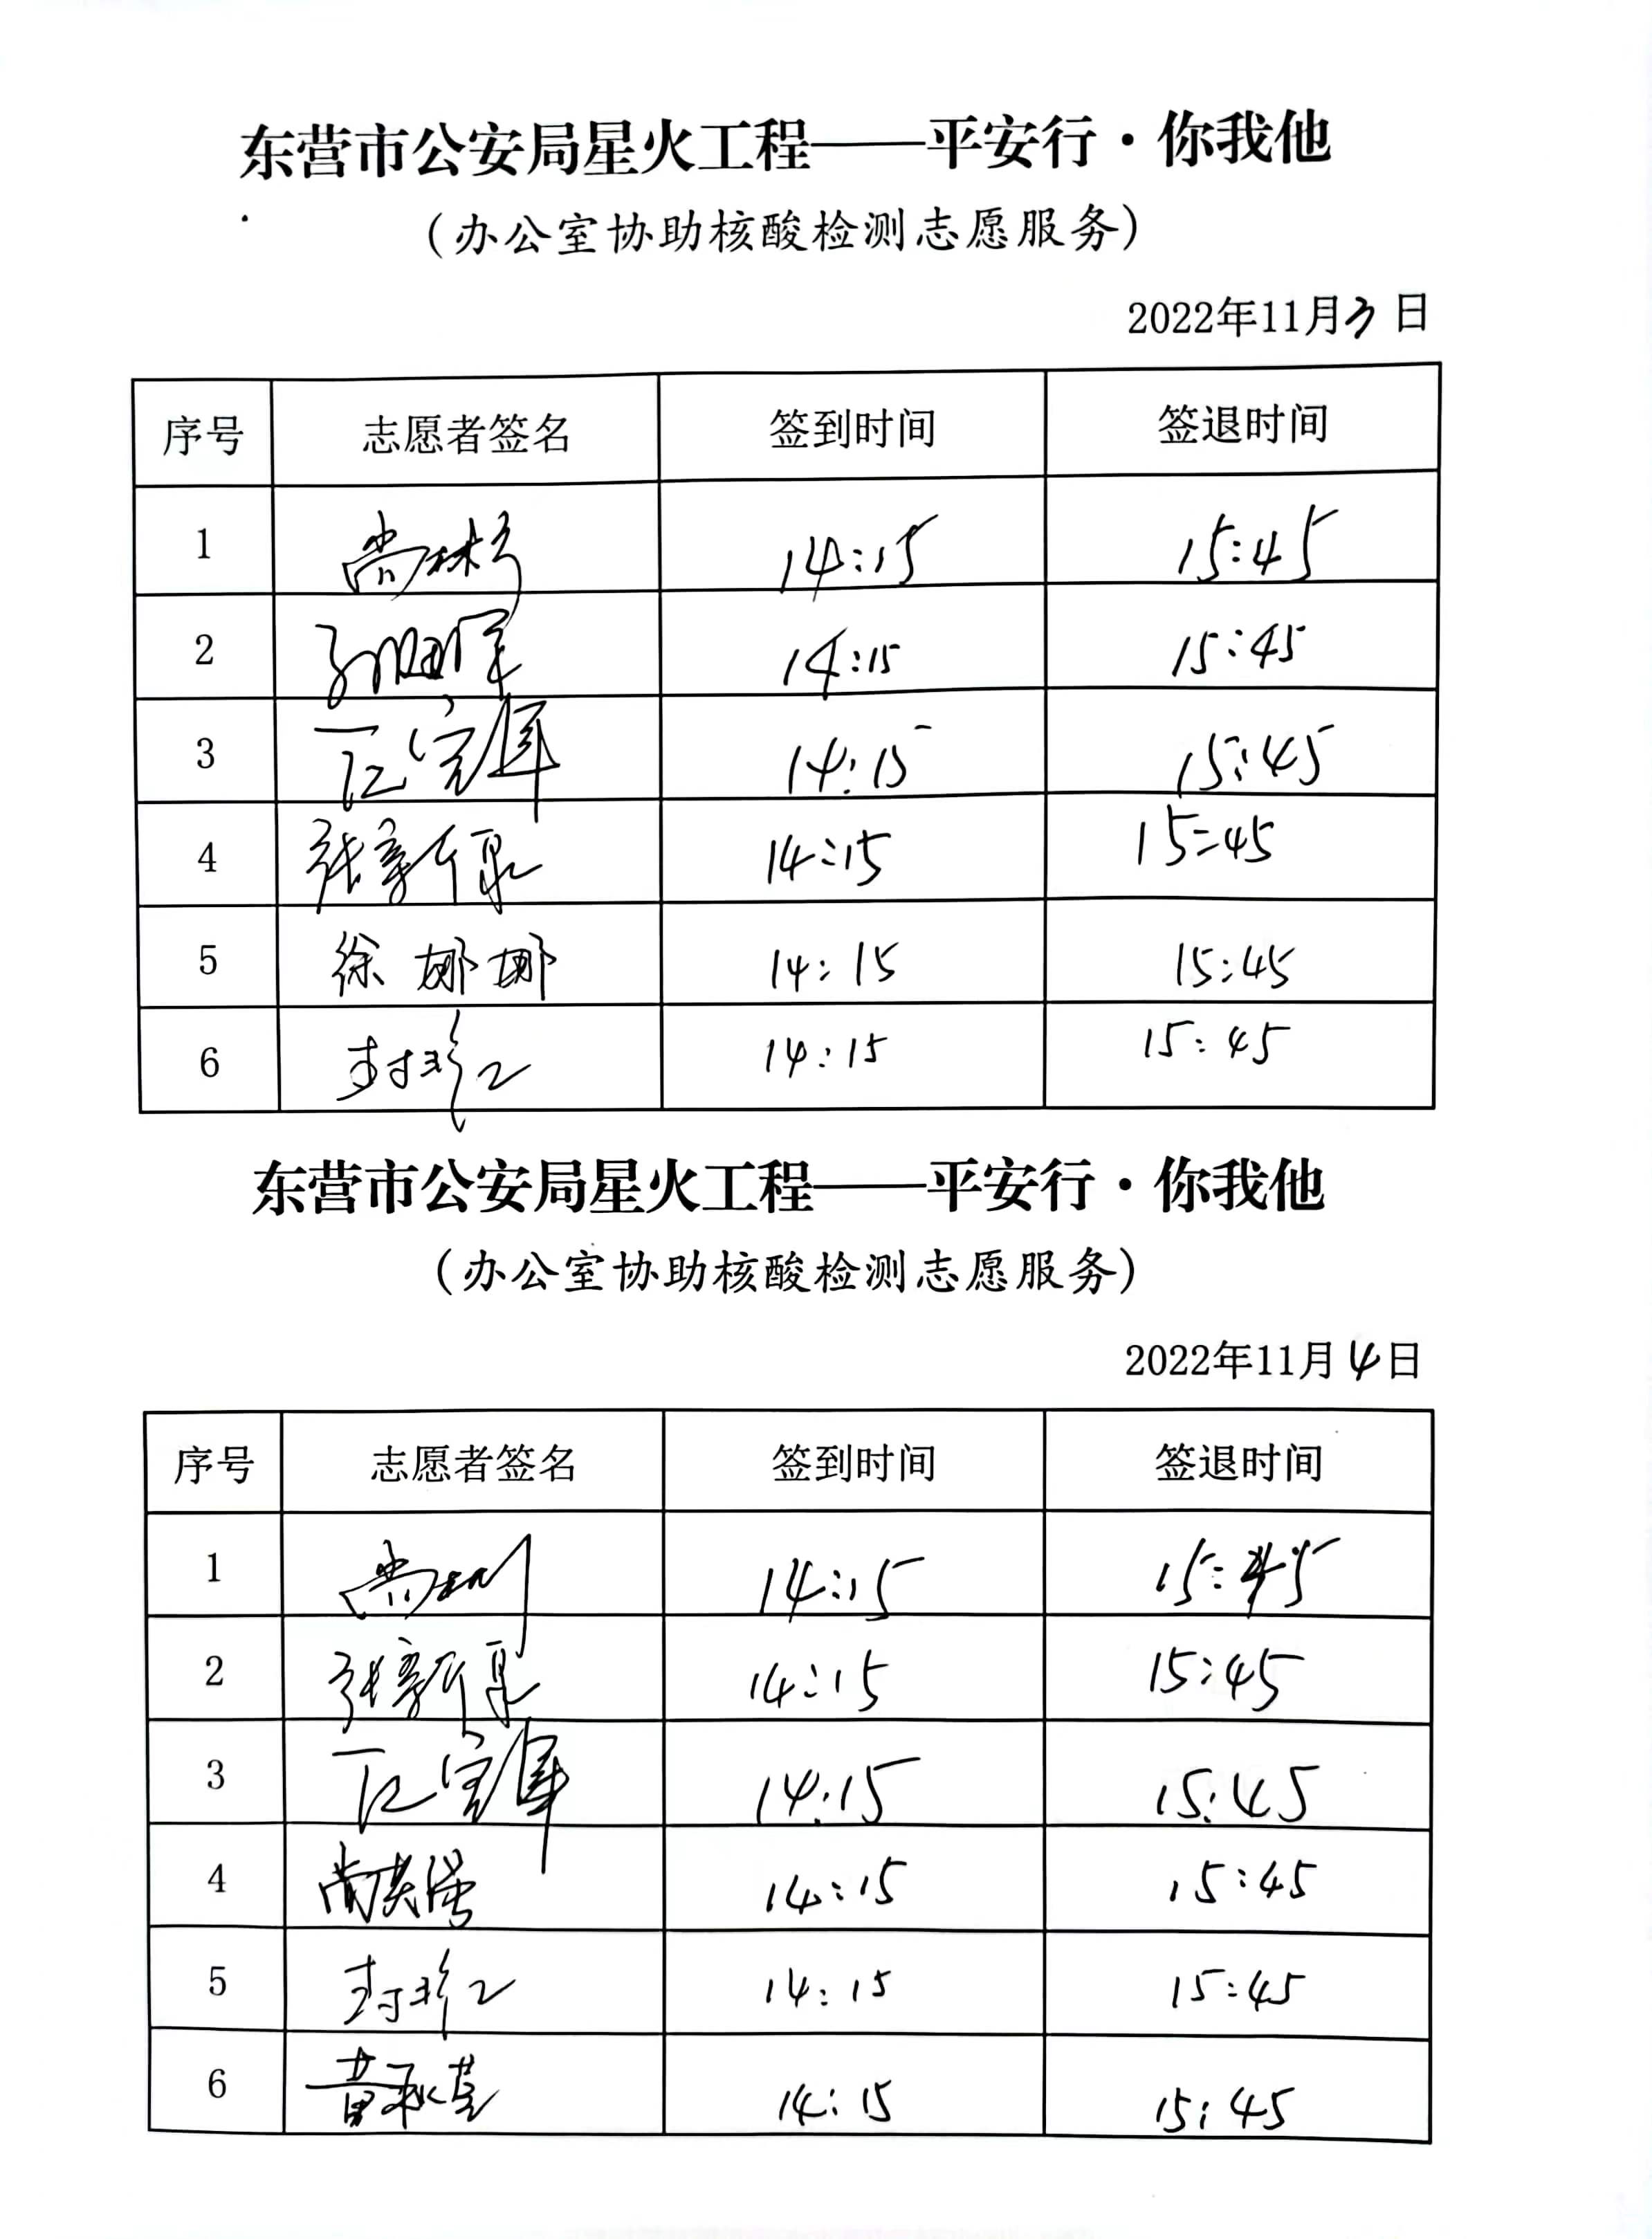 东营市公安局星火工程——平安行·你我他
(办公室协助核酸检测志愿服务)
2022年11月3日
序号 志愿者签名 签到时间 签退时间
1 尚林 14:15 15:45
2 14:15 15:45
3 14:15 15:45
4 张新泉 14:15 15:45
5 徐娜娜 14:15 15:45
6 封珍 14:15 15:45
东营市公安局星火工程——平安行·你我他
(办公室协助核酸检测志愿服务)
2022年11月4日
序号 志愿者签名 签到时间 签退时间
1 尚 14:15 15:45
2 张新泉 14:15 15:45
3 14:15 15:45
4 尚 14:15 15:45
5 封珍 14:15 15:45
6 黄 14:15 15:45